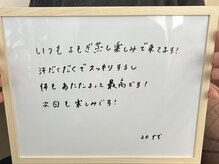 いつもよもぎ蒸し楽しみで来てます!
汗だくだくでスッキリするし
体もあたたまって最高です!
次回も楽しみです!
20代